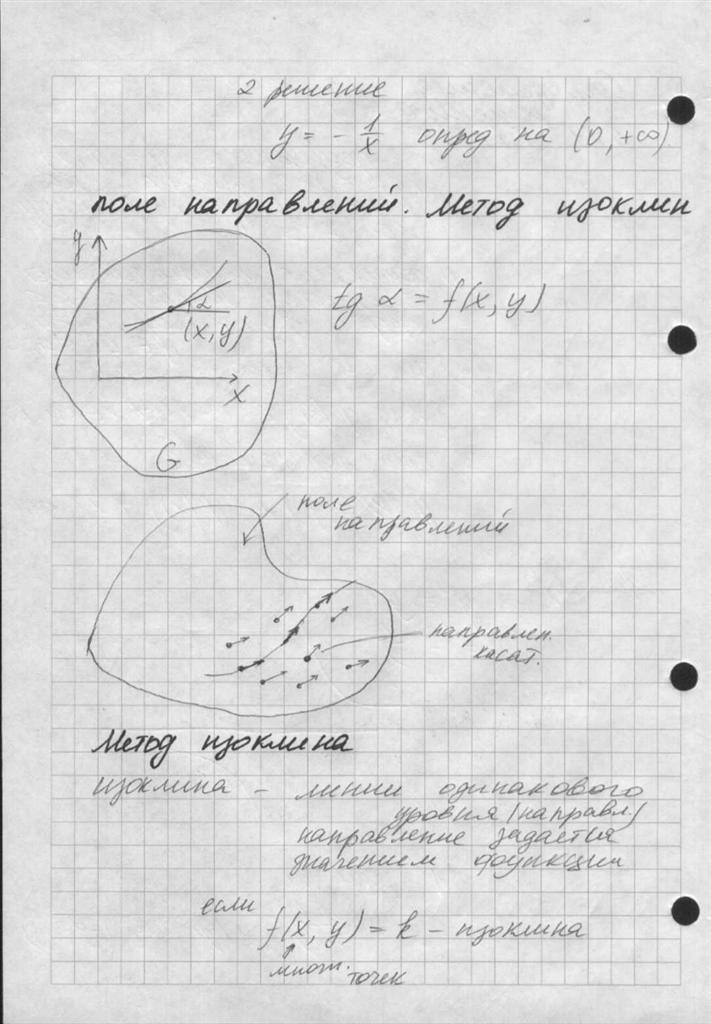 2 решение
y = - 1/x опред на (0, +∞)
поле направлений. Метод изоклин
y
α
(x, y)
tg α = f(x, y)
x
G
поле
направлений
направлен.
касат.
Метод изоклина
изоклина - линии одинакового
уровня (направл)
направление задается
значением функции
если
f(x, y) = k - изоклина
множ. точек